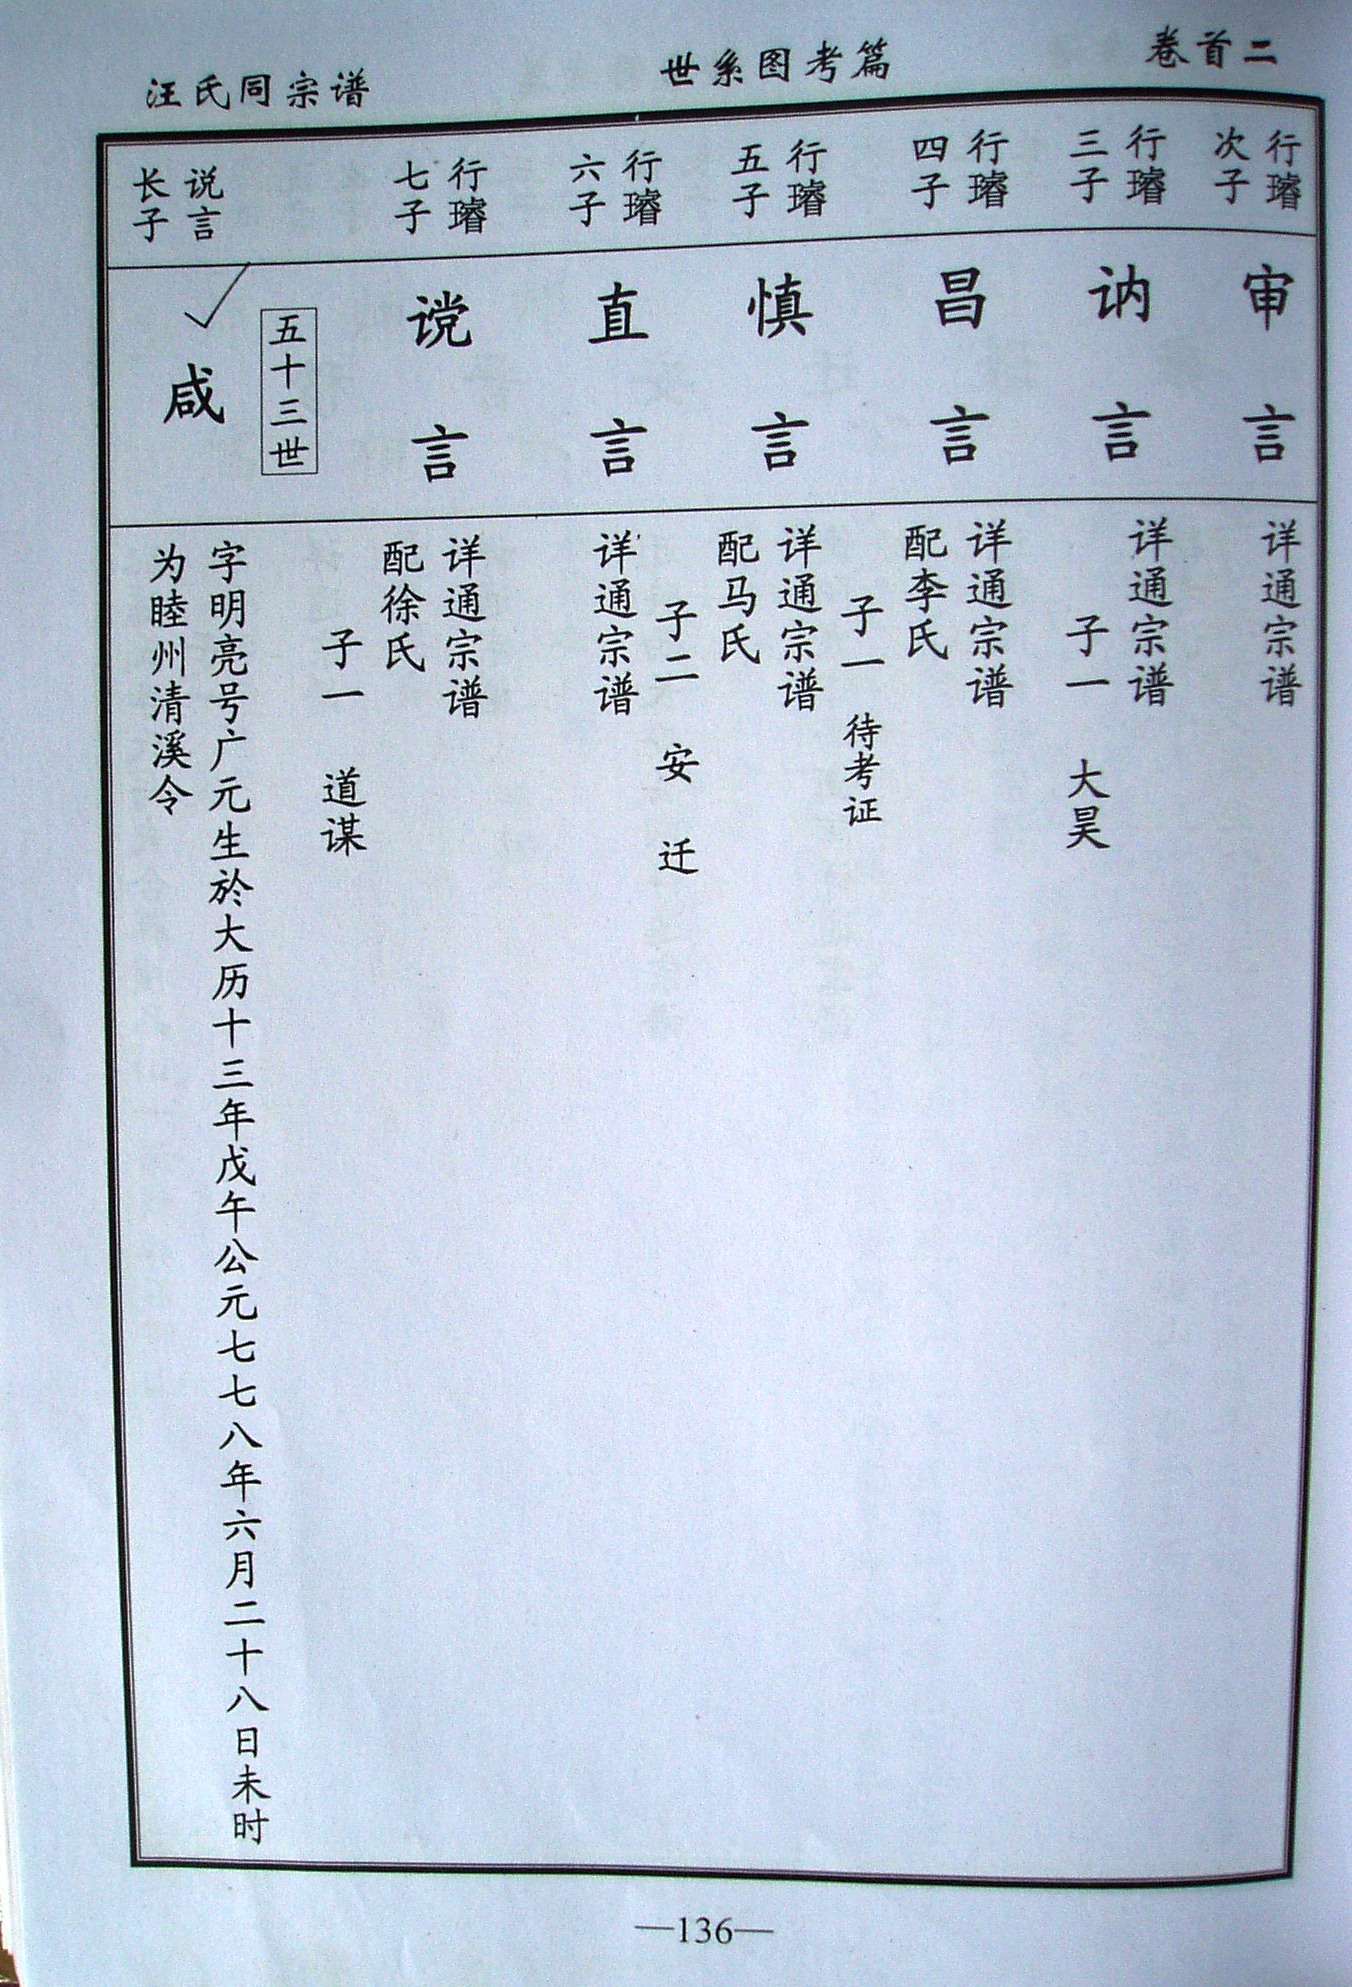 卷首二
世系图考篇
汪氏同宗谱
行璿
次子
审言
详通宗谱
行璿
三子
讷言
详通宗谱
子一 大昊
行璿
四子
昌言
详通宗谱
配李氏
子一 待考证
行璿
五子
慎言
详通宗谱
配马氏
子二 安 迁
行璿
六子
直言
详通宗谱
行璿
七子
谠言
详通宗谱
配徐氏
子一 道谋
五十三世
说言
长子
咸
字明亮号广元生於大历十三年戊午公元七七八年六月二十八日未时
为睦州清溪令
—136—